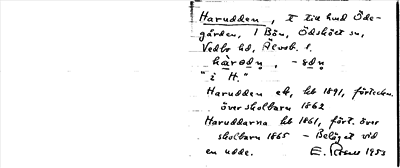 Harudden, t till hmd Öde-
gården, 1 Bön, Ödskölt sn,
Vedbo hd, Älvsb. l.
"i H."
Harudden ek, hb 1891, förteckn.
över skolbarn 1862
Haruddarna hb 1861, fört. över
skolbarn 1865 – Beläget vid
en udde. E. 1953